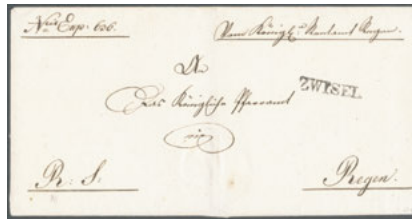 Nrus Exp. 606.
Vom Königl. Rentamt Regen.
An
Das Königliche Pfarramt
ZWISEL
in
R. S.
Regen.